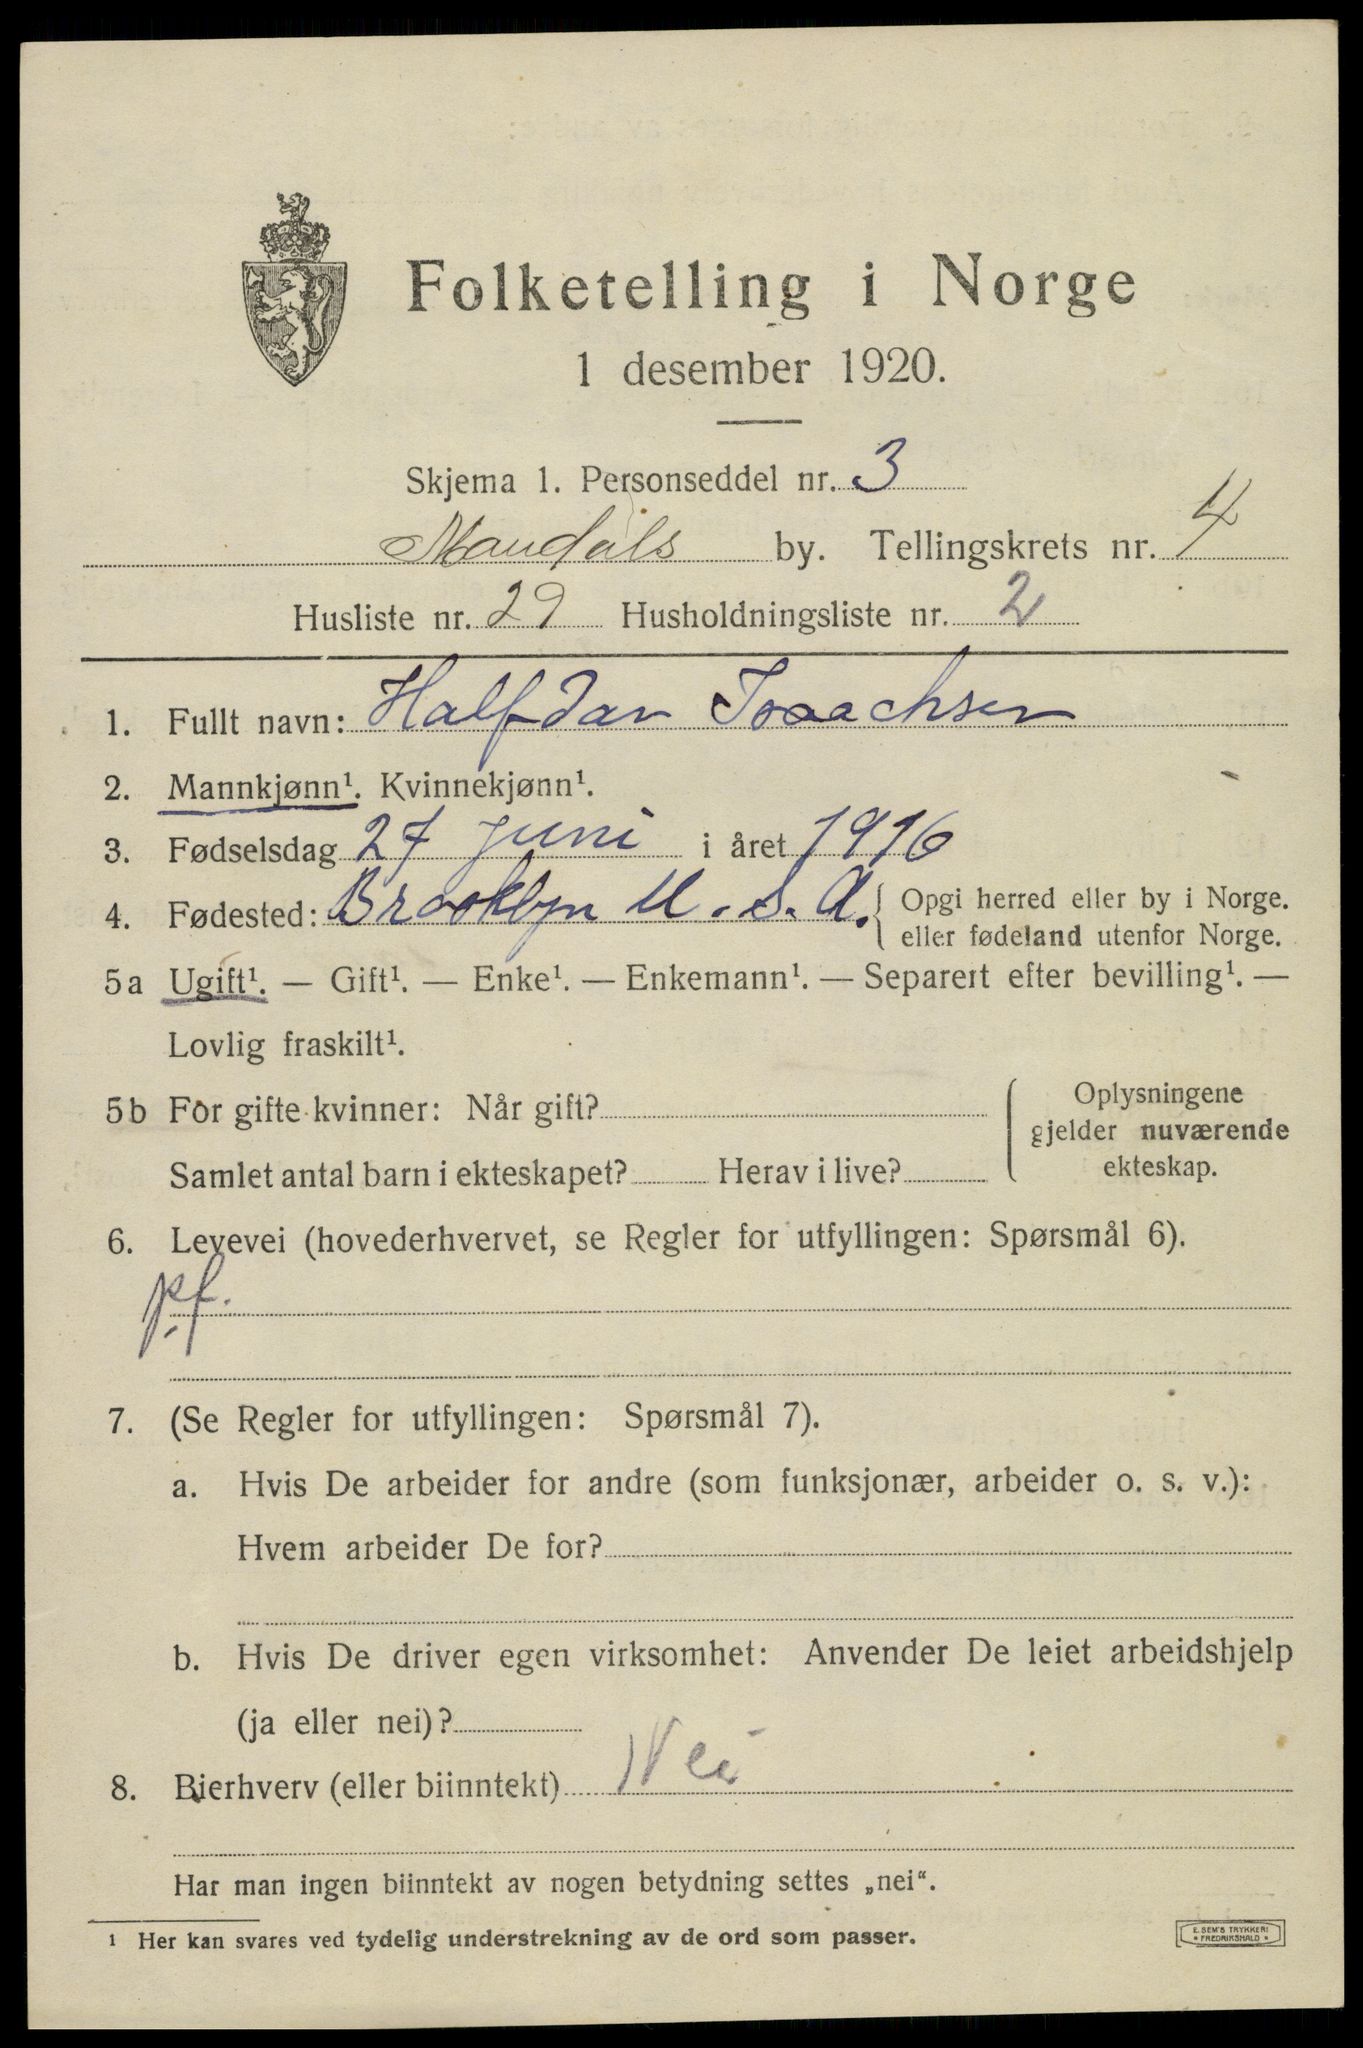 Folketelling i Norge
1 desember 1920.
Skjema 1. Personseddel nr. 3
Mandals by. Tellingskrets nr. 4
Husliste nr. 29 Husholdningsliste nr. 2
1. Fullt navn: Halfdan Isaachsen
2. Mannkjønn¹. Kvinnekjønn¹.
3. Fødselsdag 27 juni i året 1916
4. Fødested: Brooklyn U.S.A. Opgi herred eller by i Norge.
eller fødeland utenfor Norge.
5a Ugift¹. — Gift¹. — Enke¹. — Enkemann¹. — Separert efter bevilling¹. —
Lovlig fraskilt¹.
5b For gifte kvinner: Når gift? Oplysningene
gjelder nuværende
Samlet antal barn i ekteskapet? Herav i live? ekteskap.
6. Levevei (hovederhvervet, se Regler for utfyllingen: Spørsmål 6).
p.f.
7. (Se Regler for utfyllingen: Spørsmål 7).
a. Hvis De arbeider for andre (som funksjonær, arbeider o. s. v.):
Hvem arbeider De for?
b. Hvis De driver egen virksomhet: Anvender De leiet arbeidshjelp
(ja eller nei)?
8. Bierhverv (eller biinntekt) Nei
Har man ingen biinntekt av nogen betydning settes „nei“.
¹ Her kan svares ved tydelig understrekning av de ord som passer.
E. SEM'S TRYKKERI
* FREDRIKSHALD *